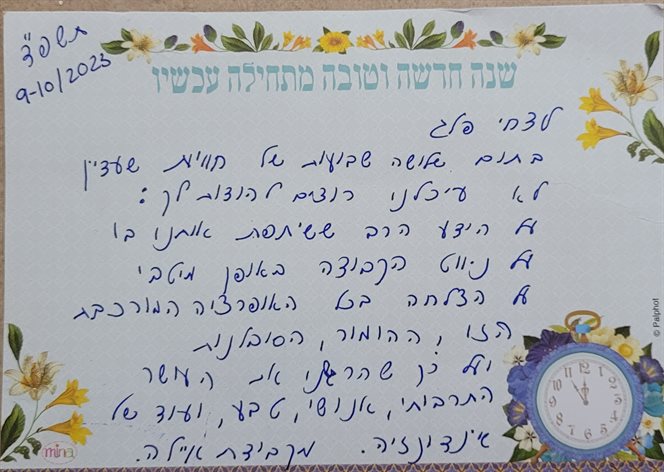 תשפ"ד
9-10/2023
שנה חדשה וטובה מתחילה עכשיו
לצחי פלג
בתום שלושה שבועות של חווית שעדיין
לא עיכלנו רוצים להודות לך:
על הידע הרב ששיתפת אותנו בו
על ניווט הקבוצה באופן מיטבי
על הצלחה בכל האופרציה המורכבת
הזו, ההומור, הסובלנות
ועל כן שהרגשנו את העושר
התרבותי, אנושי, טבעי, ועוד של
אינדונזיה. מקבוצת איילה.
© Palphot
mina
12 1 2 3 4 5 6 7 8 9 10 11